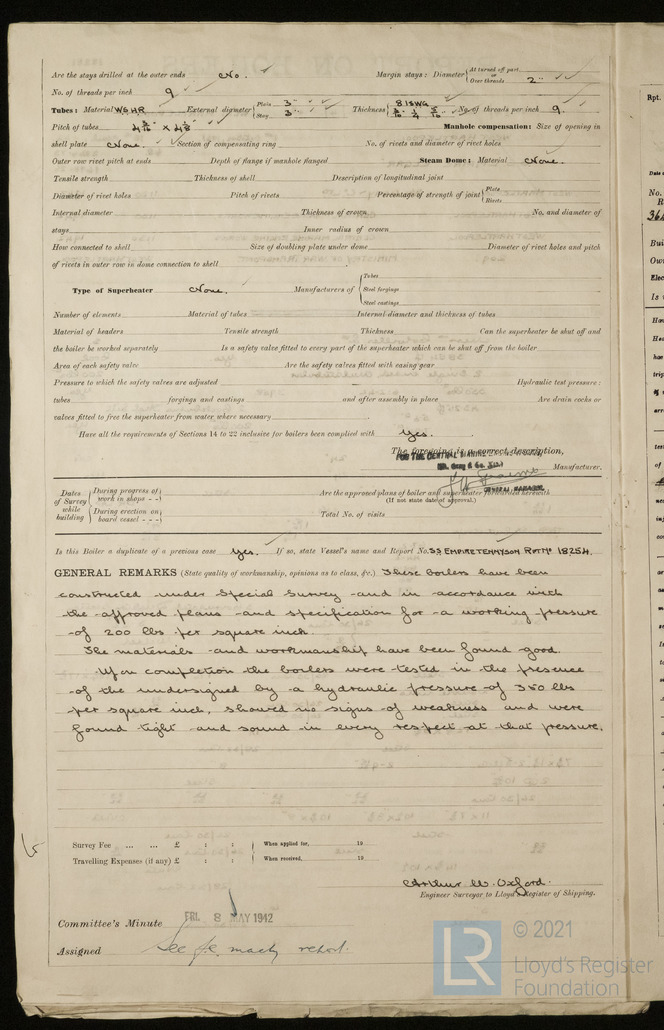 Are the stays drilled at the outer ends No. Margin stays: Diameter { At turned off part, or Over threads 2"
No. of threads per inch 9
Tubes: Material W G H R External diameter { Plain 3" Stay 3" Thickness { 8 ISWG 5/16 1/4 No. of threads per inch 9.
Pitch of tubes Manhole compensation: Size of opening in
shell plate None. Section of compensating ring No. of rivets and diameter of rivet holes
Outer row rivet pitch at ends Depth of flange if manhole flanged Steam Dome: Material None.
Tensile strength Thickness of shell Description of longitudinal joint
Diameter of rivet holes Pitch of rivets Percentage of strength of joint { Plate Rivets
Internal diameter Thickness of crown No. and diameter of
stays Inner radius of crown
How connected to shell Size of doubling plate under dome Diameter of rivet holes and pitch
of rivets in outer row in dome connection to shell
Type of Superheater None. Manufacturers of { Tubes Steel forgings Steel castings
Number of elements Material of tubes Internal diameter and thickness of tubes
Material of headers Tensile strength Thickness Can the superheater be shut off and
the boiler be worked separately Is a safety valve fitted to every part of the superheater which can be shut off from the boiler
Area of each safety valve Are the safety valves fitted with easing gear
Pressure to which the safety valves are adjusted Hydraulic test pressure:
tubes forgings and castings and after assembly in place Are drain cocks or
valves fitted to free the superheater from water where necessary
Have all the requirements of Sections 14 to 22 inclusive for boilers been complied with Yes.
The foregoing is a correct description,
FOR THE CENTRAL MARINE
Manufacturer.
GENERAL MANAGER.
Dates of Survey while building { During progress of work in shops - - During erection on board vessel - - -
Are the approved plans of boiler and superheater forwarded herewith
(If not state date of approval.)
Total No. of visits
Is this Boiler a duplicate of a previous case Yes. If so, state Vessel's name and Report No. S.S EMPIRE TENNYSON RPT No 18254.
GENERAL REMARKS (State quality of workmanship, opinions as to class, &c.) These boilers have been
constructed under Special Survey and in accordance with
the approved plans and specification for a working pressure
of 200 lbs per square inch.
The materials and workmanship have been found good.
Upon completion the boilers were tested in the presence
of the undersigned by a hydraulic pressure of 350 lbs
per square inch, showed no signs of weakness and were
found tight and sound in every respect at that pressure.
Survey Fee ... ... £ : : When applied for, 19
Travelling Expenses (if any) £ : : When received, 19
Arthur W. Oxford.
Engineer Surveyor to Lloyd's Register of Shipping.
Committee's Minute FRI. 8 MAY 1942
Assigned See f.e. machy report.
LR © 2021
Lloyd's Register
Foundation
Rpt.